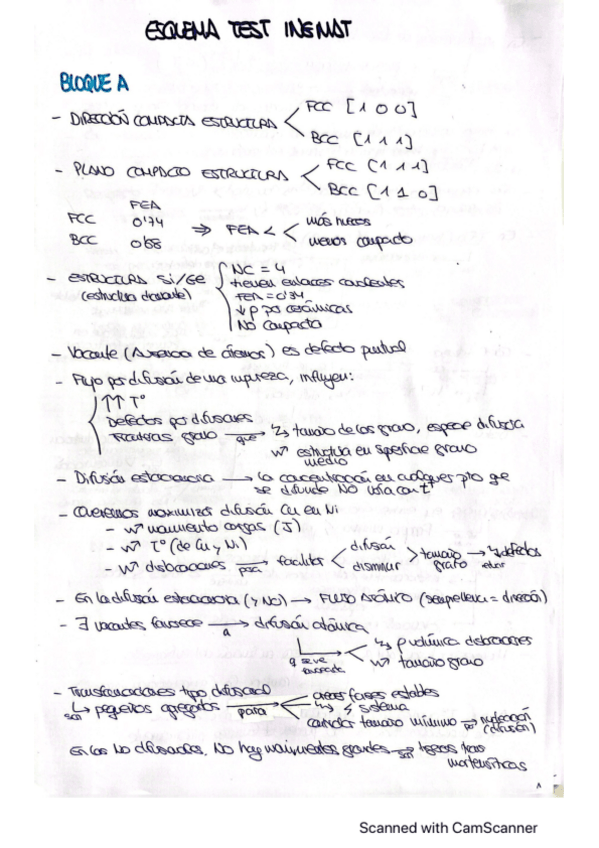 ESQUEMA TEST INGMAT
BLOQUE A
- DIRECCIÓN COMPACTA ESTRUCTURA < FCC [1 0 0]
BCC [1 1 1]
- PLANO COMPACTO ESTRUCTURA < FCC [1 1 1]
BCC [1 1 0]
FEA
FCC 0'74
BCC 0'68
⇒ FEA < < más huecos
menos compacto
- ESTRUCTURA Si/Ge
(estructura diamante)
NC = 4
tienen enlaces covalentes
FEA = 0'34
↓ρ cerámicas
No compacta
- Vacante (Ausencia de átomos) es defecto puntual
- Flujo por difusión de una impureza, influyen:
↑↑ Tº
Defectos
grano → que tamaño de los grano, especie difundida
estructura en superficie grano
medio
- Difusión estacionaria → la concentración en
se difunde NO varía con t
- Queremos maximizar difusión Cu en Ni
- movimiento cargas (J)
- Tº (de Cu y Ni)
- dislocaciones para facilitar < difusión
disminuir > tamaño grano → defectos
- En la difusión estacionaria (y NO) → FLUJO ATÓMICO
- ∃ vacantes, favorece → a difusión atómica
q se ve
dislocaciones
tamaño grano
- Transformaciones tipo difusional
↳ son pequeños agregados → para crear fases estables
sistema
tamaño mínimo ⇒ nucleación
(difusión)
En las No difusionales, No hay movimientos grandes → son
martensíticas
Scanned with CamScanner